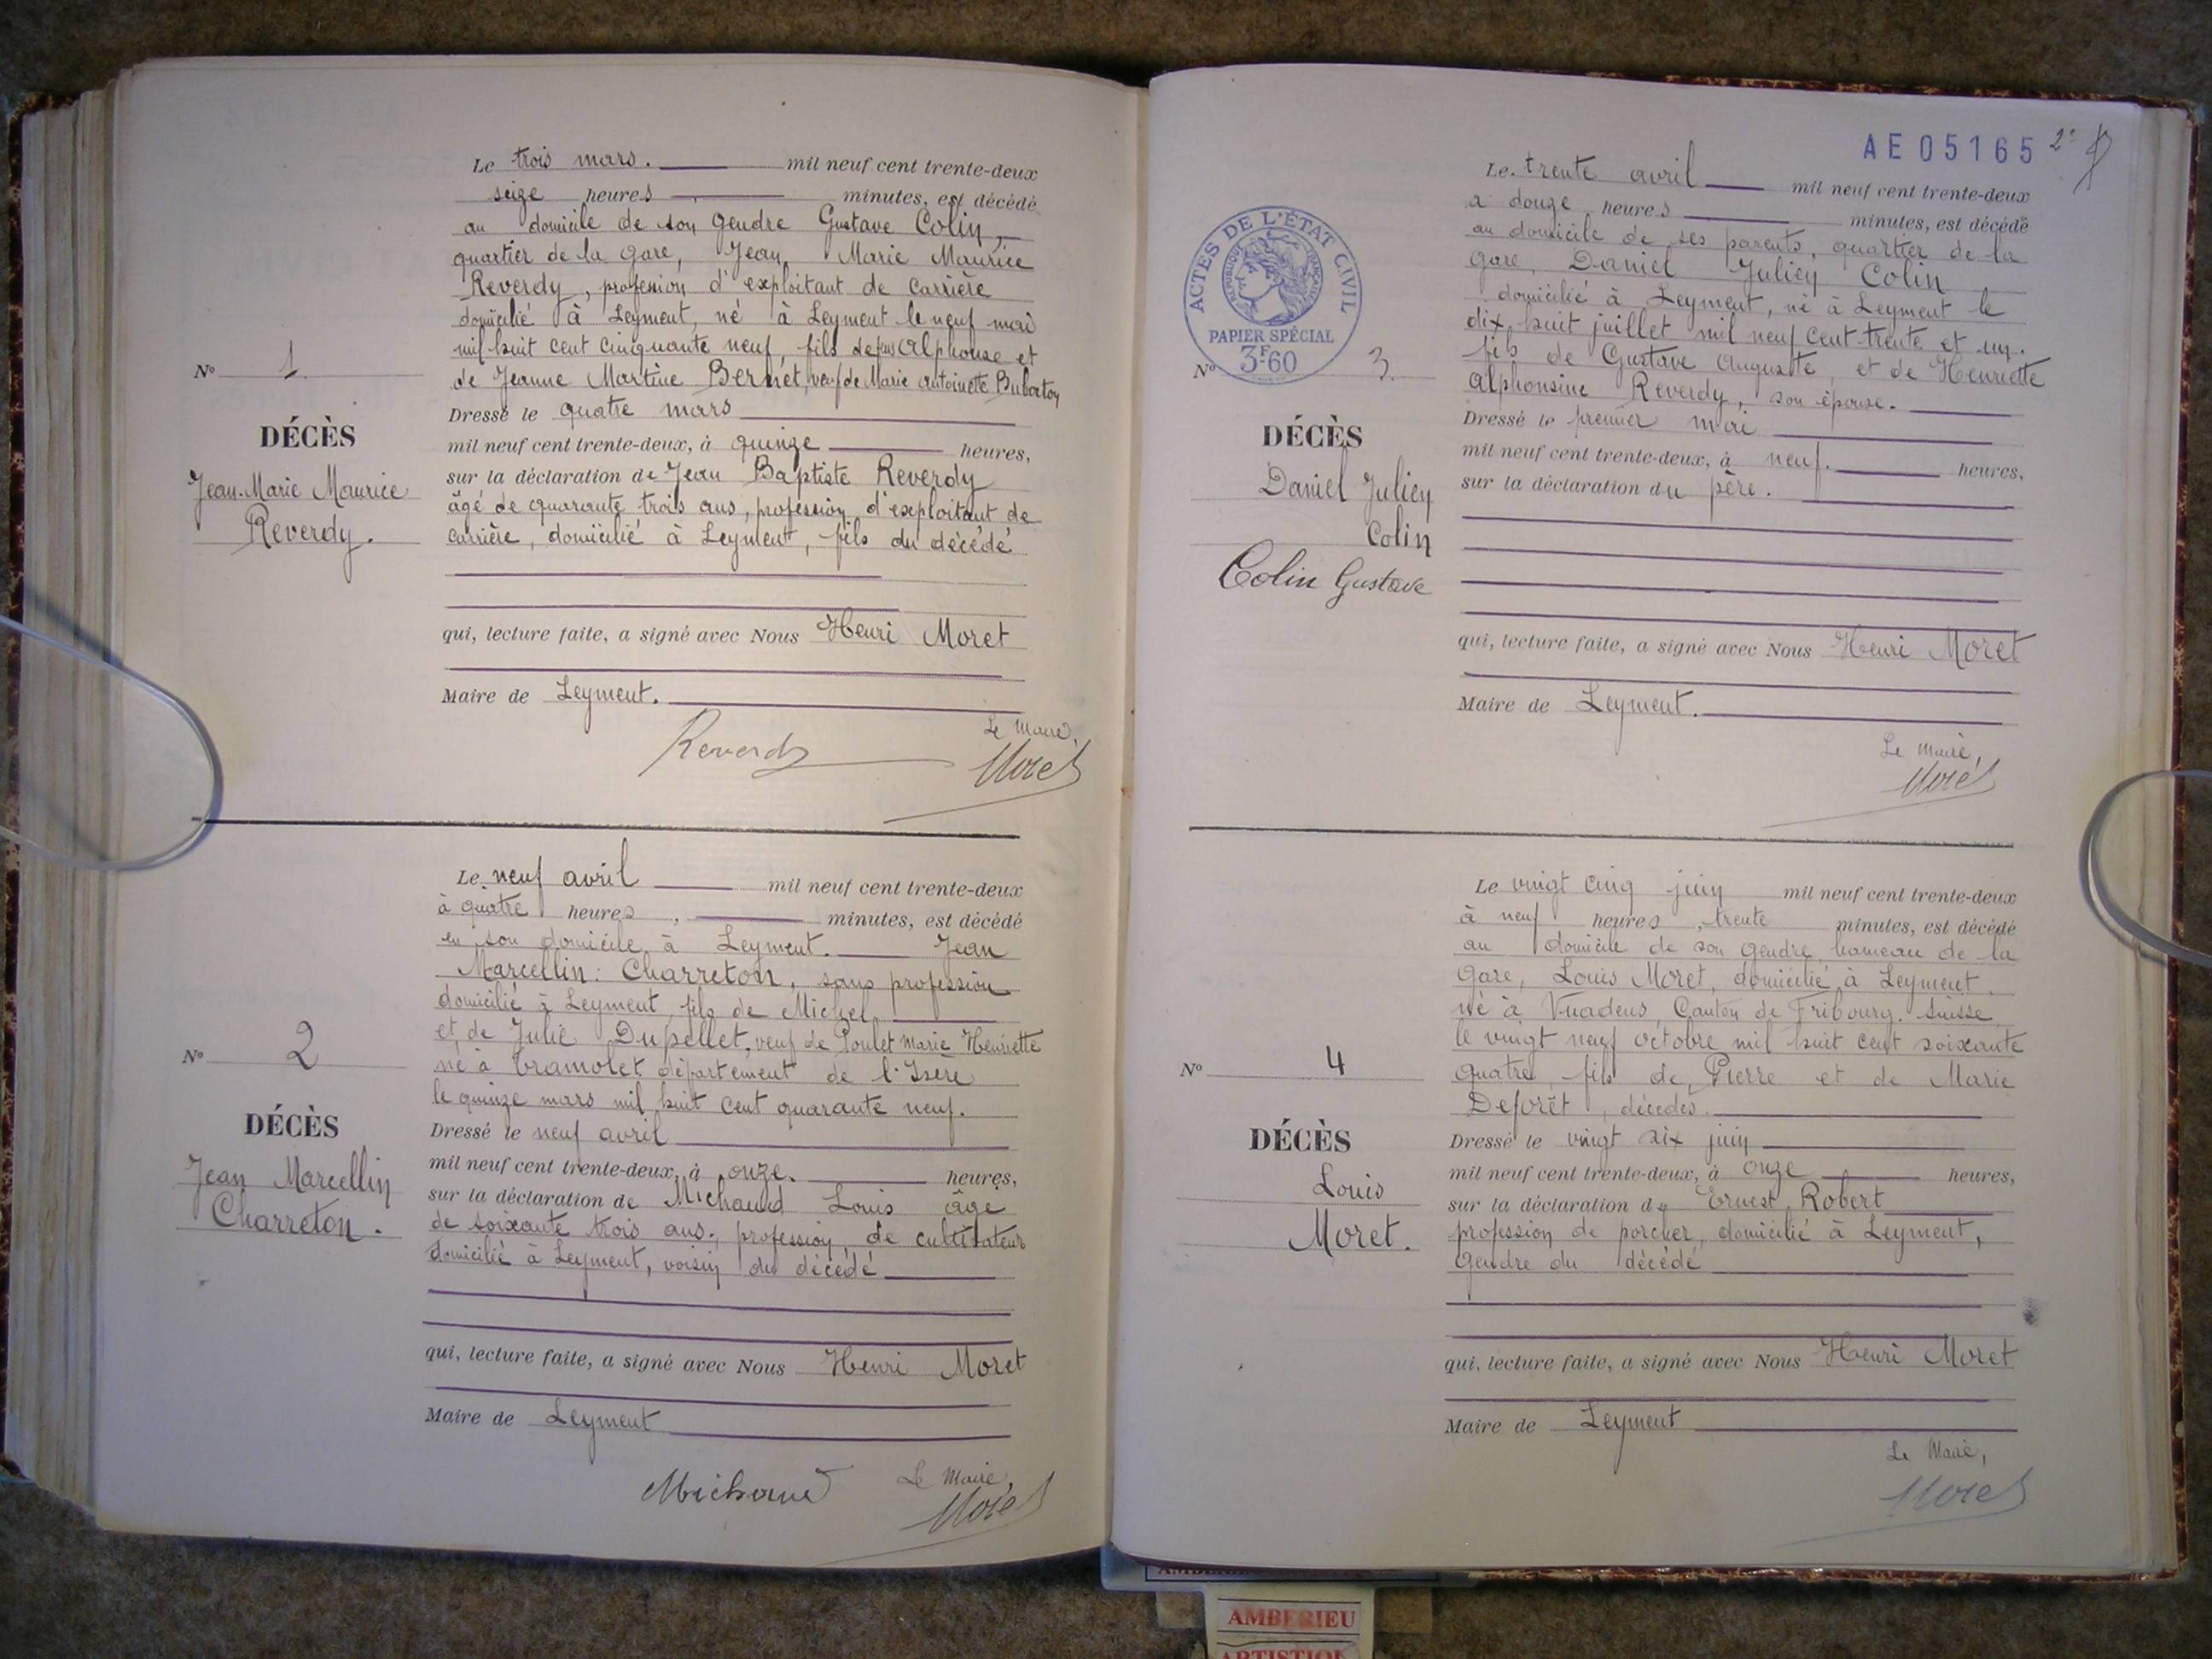 Le trois mars. mil neuf cent trente-deux
seize heures minutes, est décédé
au domicile de son gendre Gustave Colin,
quartier de la gare, Jean Marie Maurice
Reverdy, profession d'exploitant de carrière
domicilié à Leyment, né à Leyment le neuf mai
mil huit cent cinquante neuf, fils de feu Alphonse et
de Jeanne Martine Bernet, veuf de Marie Antoinette Bubaton
Dressé le quatre mars
mil neuf cent trente-deux, à quinze heures,
sur la déclaration de Jean Baptiste Reverdy
âgé de quarante trois ans, profession d'exploitant de
carrière, domicilié à Leyment, fils du décédé
qui, lecture faite, a signé avec Nous Henri Moret
Maire de Leyment.
Le Maire,
Reverdy Moret
N° 1
DÉCÈS
Jean-Marie Maurice
Reverdy.
Le neuf avril mil neuf cent trente-deux
à quatre heures, minutes, est décédé
en son domicile à Leyment. Jean
Marcellin: Charreton, sans profession
domicilié à Leyment, fils de Michel
et de Julie Dupellet, veuf de Poulet Marie Henriette
né à Tramolet département de l'Isère
le quinze mars mil huit cent quarante neuf.
Dressé le neuf avril
mil neuf cent trente-deux, à onze. heures,
sur la déclaration de Michaud Louis âgé
de soixante trois ans, profession de cultivateur
domicilié à Leyment, voisin du décédé
qui, lecture faite, a signé avec Nous Henri Moret
Maire de Leyment
Le Maire,
Michaud Moret
N° 2
DÉCÈS
Jean Marcellin
Charreton.
AE05165 2e
Le. trente avril mil neuf cent trente-deux
à douze heures minutes, est décédé
au domicile de ses parents, quartier de la
gare, Daniel Julien Colin
domicilié à Leyment, né à Leyment le
dix huit juillet mil neuf cent trente et un.
fils de Gustave Auguste, et de Henriette
Alphonsine Reverdy, son épouse.
Dressé le premier mai
mil neuf cent trente-deux, à neuf. heures,
sur la déclaration du père.
qui, lecture faite, a signé avec Nous Henri Moret
Maire de Leyment.
Le Maire,
Moret
ACTES DE L'ÉTAT CIVIL
RÉPUBLIQUE FRANÇAISE
PAPIER SPÉCIAL
3F60
N° 3.
DÉCÈS
Daniel Julien
Colin
Colin Gustave
Le vingt cinq juin mil neuf cent trente-deux
à neuf heures, trente minutes, est décédé
au domicile de son gendre, hameau de la
gare, Louis Moret, domicilié à Leyment.
né à Vuadens, Canton de Fribourg. Suisse
le vingt neuf octobre mil huit cent soixante
quatre, fils de Pierre et de Marie
Deforêt, décédés.
Dressé le vingt six juin
mil neuf cent trente-deux, à onze heures,
sur la déclaration du Ernest Robert
profession de porcher, domicilié à Leyment,
gendre du décédé
qui, lecture faite, a signé avec Nous Henri Moret
Maire de Leyment
Le Maire,
Moret
N° 4
DÉCÈS
Louis
Moret.
AMBERIEU